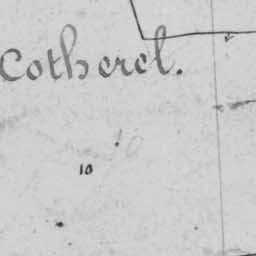 Cotherel.
10